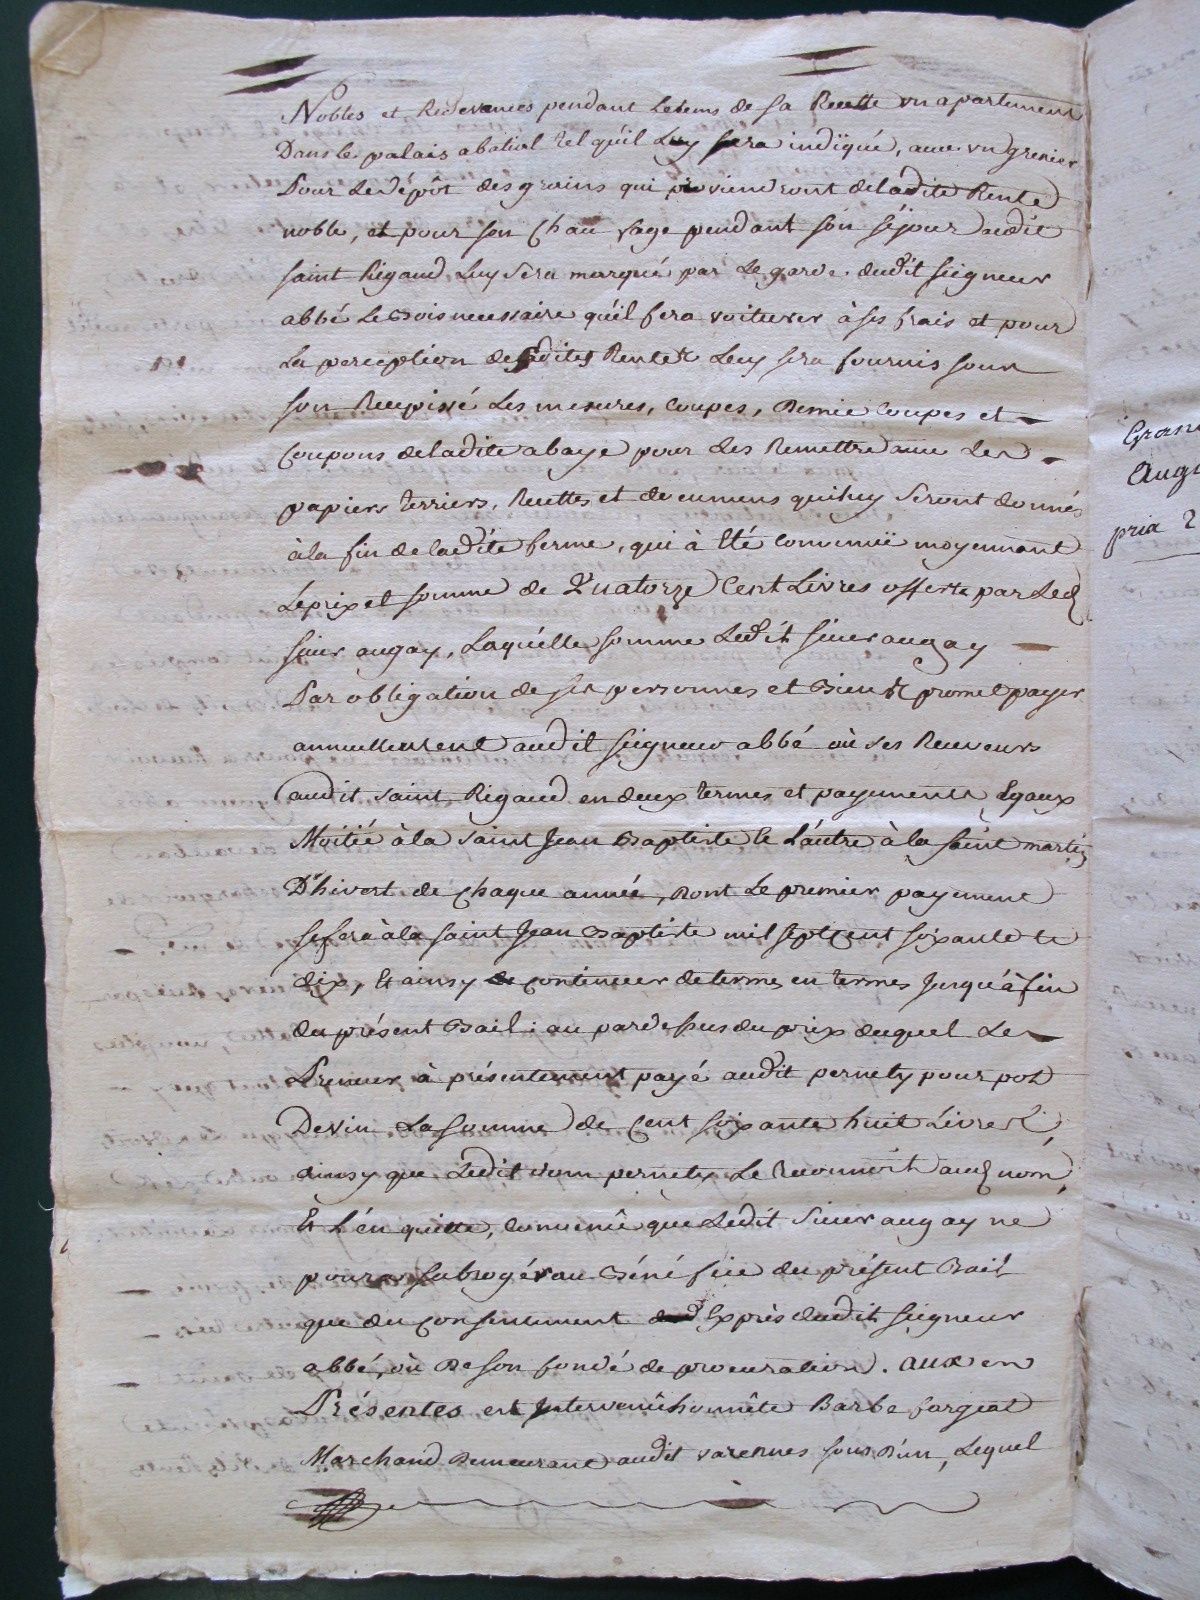 Nobles et Redevances pendant letems de sa Recette un apartement
Dans le palais abatial tel qu'il luy sera indiqué, avec un grenier
Pour le dépôt des grains qui proviendront de ladite Rente
noble, et pour son chaufage pendant son séjour audit
saint Rigaud, luy sera marqué par le garde dudit seigneur
abbé le Bois necessaire qu'il fera voiturer à ses frais et pour
La perception desdites Rentes Luy sera fournis sous
son Recepissé Les mesures, coupes, Demie coupes et
Coupons de ladite abaye pour les Remettre avec les
papiers terriers, Recettes et documens qui luy seront donnés
à la fin de ladite ferme, qui à Eté convenüe moyennant
Le prix et somme de Quatorze Cent Livres offerte par Led
sieur augay, Laquelle somme Ledit sieur augay
Par obligation de ses personnes et Biens promet payer
annuellement audit seigneur abbé où ses Receveurs
audit saint Rigaud en deux termes et payements Egaux
Moitié à la saint Jean Baptiste et L'autre à la saint martin
D'hivert de chaque année, Dont Le premier payement
se fera à la saint Jean Baptiste mil sept cent soixante et
dix, Et ainsy continuer de termes en termes Jusqu'à fin
du présent Bail; au pardessus du prix duquel Le
Preneur à présentement payé audit pernety pour pot
De vin La somme de Cent soixante huit Livres,
ainsy que Ledit dom pernety Le Reconnoit aud nom,
Et L'en quitte, convenû que Ledit sieur augay ne
pourra subrogér au Bénéfice du présent Bail
que du consentement Exprès dudit seigneur
abbé, où De son fondé de procuration. aux en
Présentes est Intervenû honnête Barbe fargeat
Marchand Demeurant audit varennes sous Dun, Lequel
Gran
Aug
pria